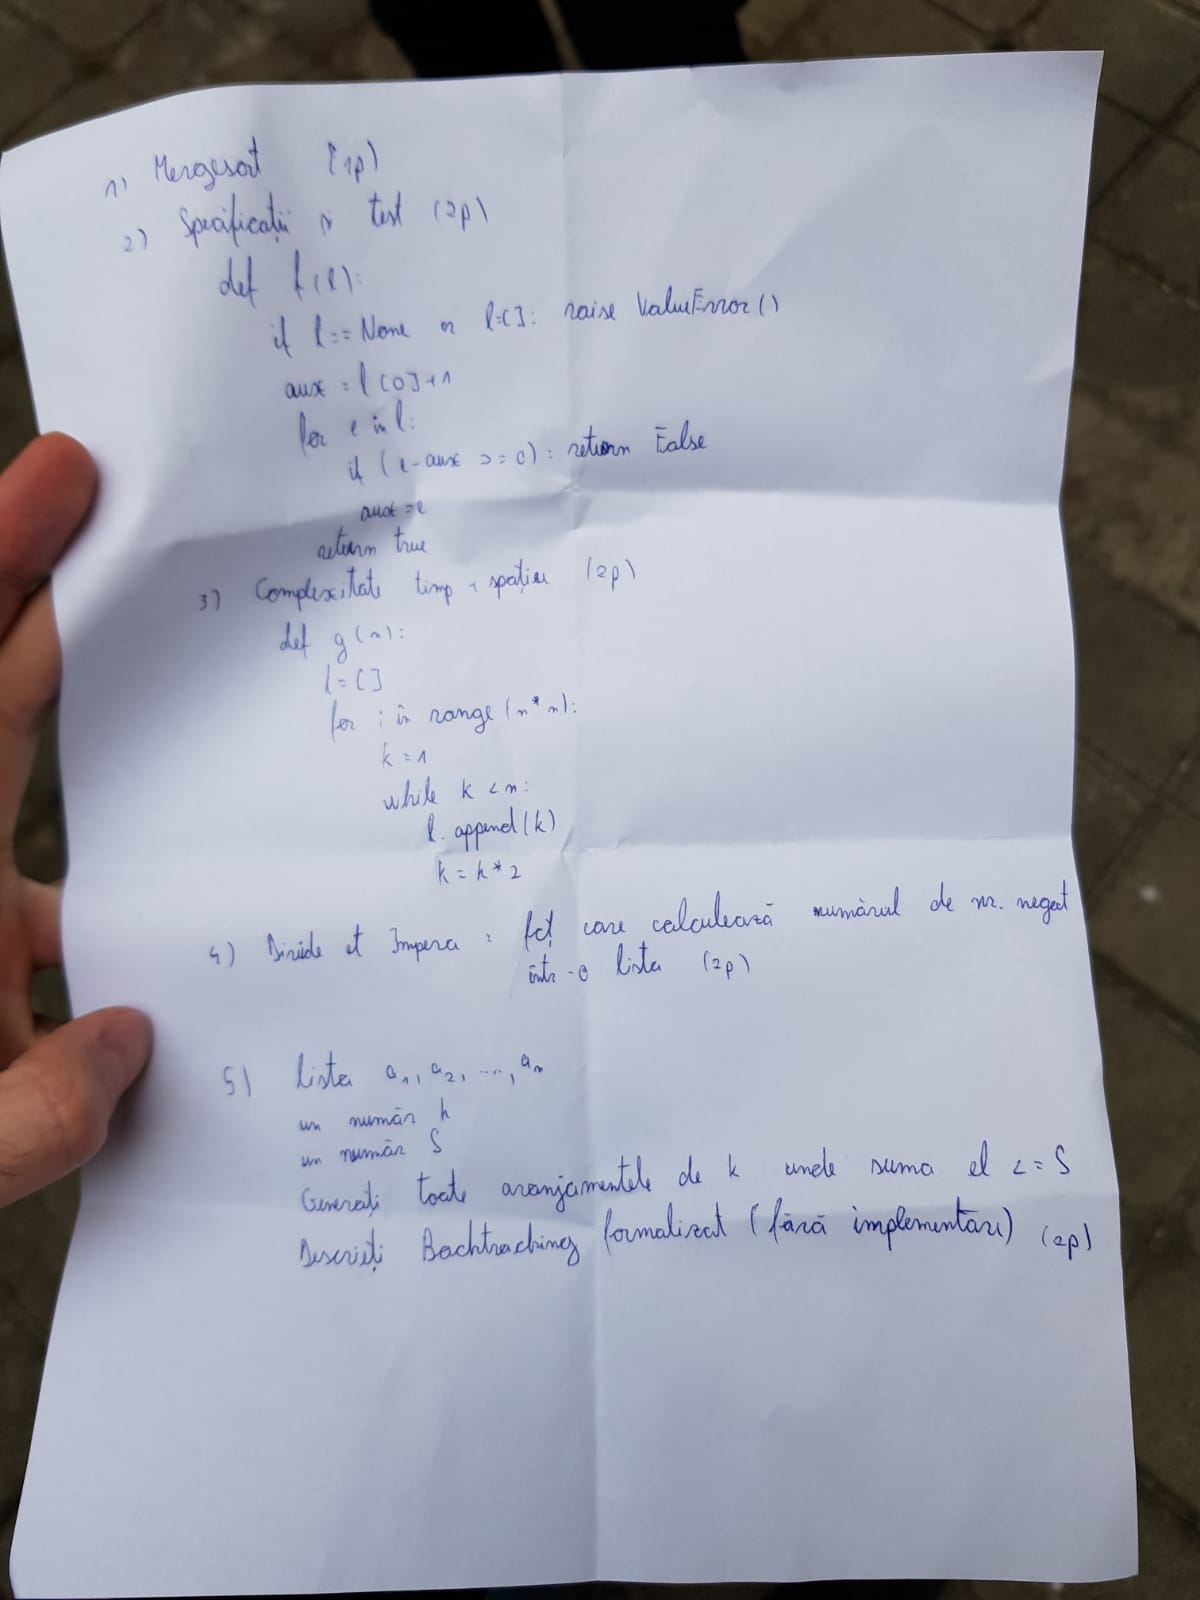 1) Mergesort (1p)
2) Specificații și test (2p)
def f(l):
if l == None or l=[]: raise ValueError()
aux = l[0]+1
for e in l:
if (e-aux >= 0): return False
aux = e
return true
3) Complexitate timp + spațiu (2p)
def g(n):
l=[]
for i in range(n*n):
k=1
while k<n:
l.append(k)
k=k*2
4) Divide et Impera: fct care calculează numărul de nr. negat
într-o lista (2p)
5) lista a1, a2, ..., an
un număr k
un număr S
Generați toate aranjamentele de k unde suma el <= S
Descrieți Backtracking formalizat (fără implementare) (2p)